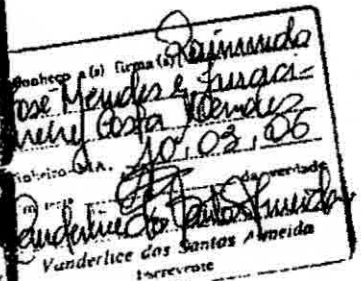 Raimunda
conheço a(s) firma(s)
José Mendes e Juraci-
Costa Mendes
MA. 10, 03, 06
da verdade
Vanderlice dos Santos Almeida
Vanderlice dos Santos Almeida
Escrevente